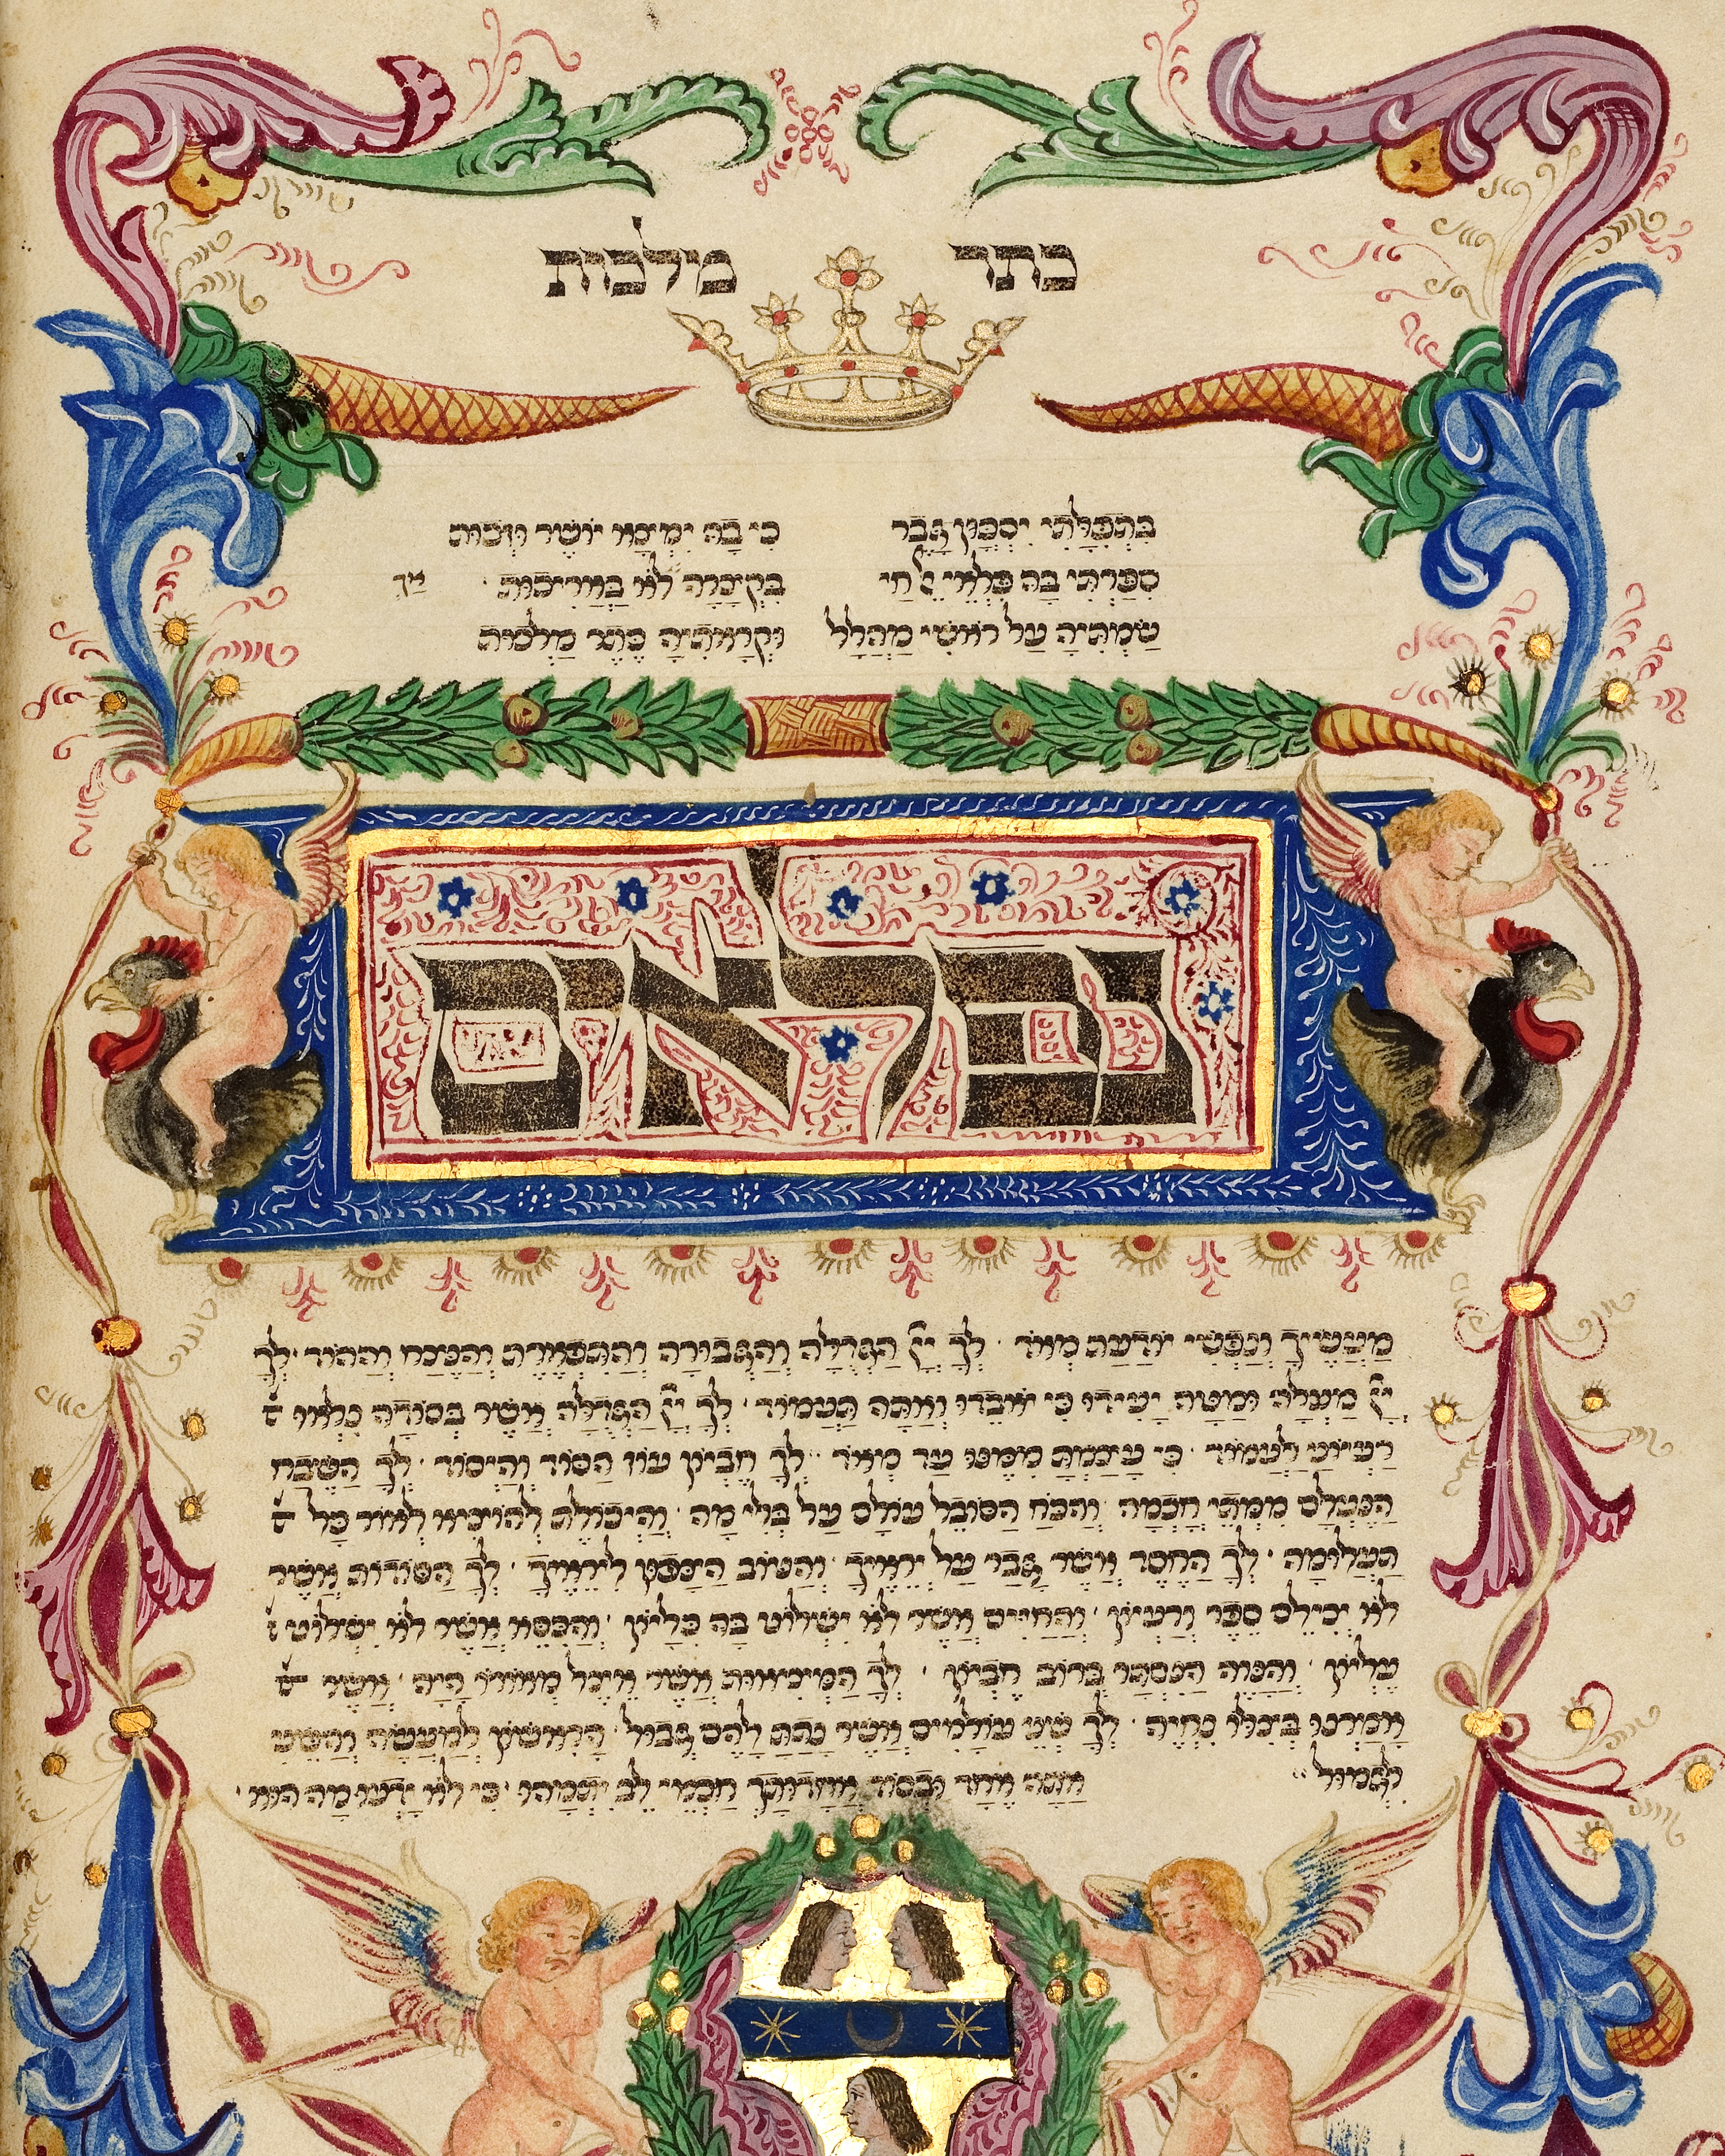 כתר מלכות
בתפלתי יסכון גבר כי בה ימצא יושר וזכות
ספרתי בה פלאי אל חי בקצרה לא באריכות · אך
שמתיה על ראשי מהלל וקראתיה כתר מלכות
נפלאים
מעשיך ונפשי יודעת מאד · לך יי הגדולה והגבורה והתפארת והנצח וההוד · לך
יי מעלה ומטה יעידו כי יאבדו ואתה תעמוד · לך יי הגדולה אשר בסודה נלאו
רעיוני לעמוד · כי עצמת ממנו עד מאד · לך חביון עוז הסוד והיסוד · לך השבח
הנעלם ממתי חכמה והכח הסובל עולם על בלי מה · והיכולת להוציא לאור כל
תעלומה · לך החסד אשר גבר על יראיך · והטוב הצפון ליראיך · לך הסודות אשר
לא יכילם ספר ורעיון · והחיים אשר לא ישלוט בה כליון · והכסא אשר לא ישלוט
עליון · והנוה הנסתר ברום חביון · לך המציאות אשר אצל מאורו היה · אשר
אמרנו בצלו נחיה · לך שני עולמים אשר נתת להם גבול · הראשון למעשה והשני
לגמול אתה אחד ובסוד אחדותך חכמי לב יתמהו · כי לא ידעו מה הוא ·